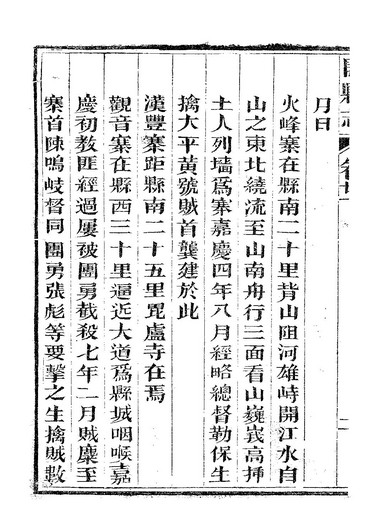 開縣志 卷廿
月日
火峰寨在縣南二十里背山阻河雄峙開江水自
山之東北繞流至山南舟行三面看山巍峩高揷
土人列墻爲寨嘉慶四年八月經略總督勒保生
擒大平黃號賊首龔建於此
漢豐寨距縣南二十五里毘盧寺在焉
觀音寨在縣西三十里逼近大道爲縣城咽喉嘉
慶初敎匪經過屢被團勇截殺七年二月賊麋至
寨首陳鳴岐督同團勇張彪等要擊之生擒賊數